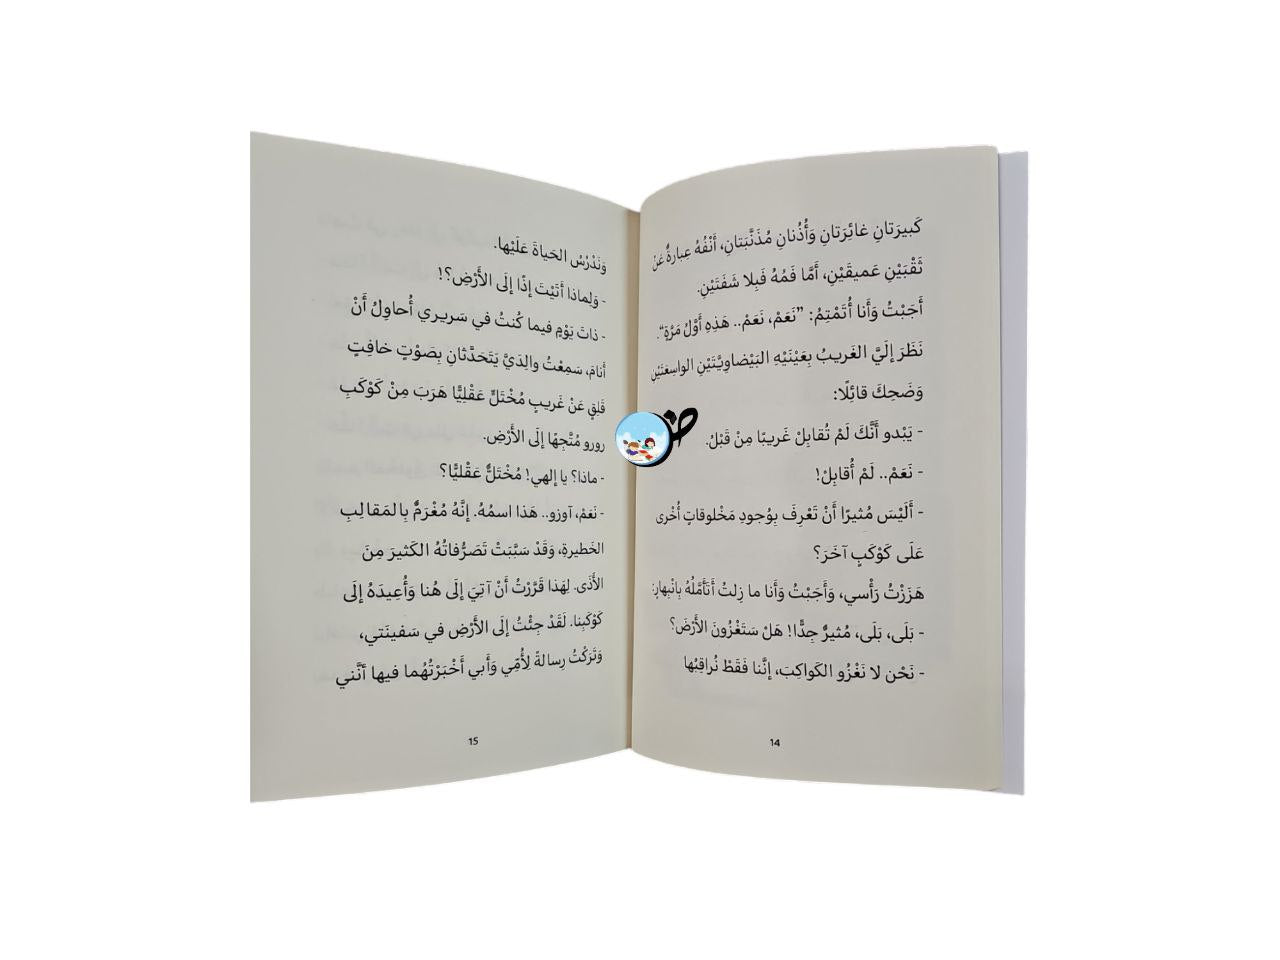 كَبيرَتانِ غائِرَتانِ وَأُذُنانِ مُذَنَّبَتانِ، أَنْفُهُ عِبارةٌ عَنْ
ثَقْبَيْنِ عَميقَيْنِ، أَمَّا فَمُهُ فَبِلا شَفَتَيْنِ.
أَجَبْتُ وَأَنا أُتَمْتِمُ: ”نَعَمْ، نَعَمْ.. هَذِهِ أَوَّلُ مَرَّةٍ“.
نَظَرَ إلَيَّ الغَريبُ بِعَيْنَيْهِ البَيْضاوِيَّتَيْنِ الواسِعَتَيْنِ
وَضَحِكَ قائِلًا:
- يَبْدو أَنَّكَ لَمْ تُقابِلْ غَريبًا مِنْ قَبْلُ.
- نَعَمْ.. لَمْ أُقابِلْ!
- أَلَيْسَ مُثيرًا أَنْ تَعْرِفَ بِوُجودِ مَخْلوقاتٍ أُخْرى
عَلَى كَوْكَبٍ آخَرَ؟
هَزَزْتُ رَأْسي، وَأَجَبْتُ وَأَنا ما زِلتُ أَتَأَمَّلُهُ بِانْبِهارٍ:
- بَلَى، بَلَى، مُثيرٌ جِدًّا! هَلْ سَتَغْزُونَ الأَرْضَ؟
- نَحْن لا نَغْزُو الكَواكِبَ، إنَّنا فَقَطْ نُراقِبُها
14
وَنَدْرُسُ الحَياةَ عَلَيْها.
- وَلِماذا أتَيْتَ إذًا إلَى الأَرْضِ؟!
- ذاتَ يَوْمٍ فيما كُنتُ في سَريري أُحاوِلُ أَنْ
أنامَ، سَمِعْتُ والِدَيَّ يَتَحَدَّثانِ بِصَوْتٍ خافِتٍ
قَلِقٍ عَنْ غَريبٍ مُخْتَلٍّ عَقْلِيًّا هَرَبَ مِنْ كَوْكَبِ
رورو مُتَّجِهًا إلَى الأَرْضِ.
- ماذا؟ يا إلهي! مُخْتَلٌّ عَقْليًّا؟
- نَعَمْ، آوزو.. هَذا اسمُهُ. إنَّهُ مُغْرَمٌ بِالمَقالِبِ
الخَطيرةِ، وَقَدْ سَبَّبَتْ تَصَرُّفاتُهُ الكَثيرَ مِنَ
الأَذَى. لِهَذا قَرَّرْتُ أَنْ آتِيَ إلَى هُنا وَأُعِيدَهُ إلَى
كَوْكَبِنا. لَقَدْ جِئْتُ إلَى الأَرْضِ في سَفينَتي،
وَتَرَكْتُ رِسالةً لِأُمِّي وَأَبي أَخْبَرْتُهُما فيها أنَّني
15
ض